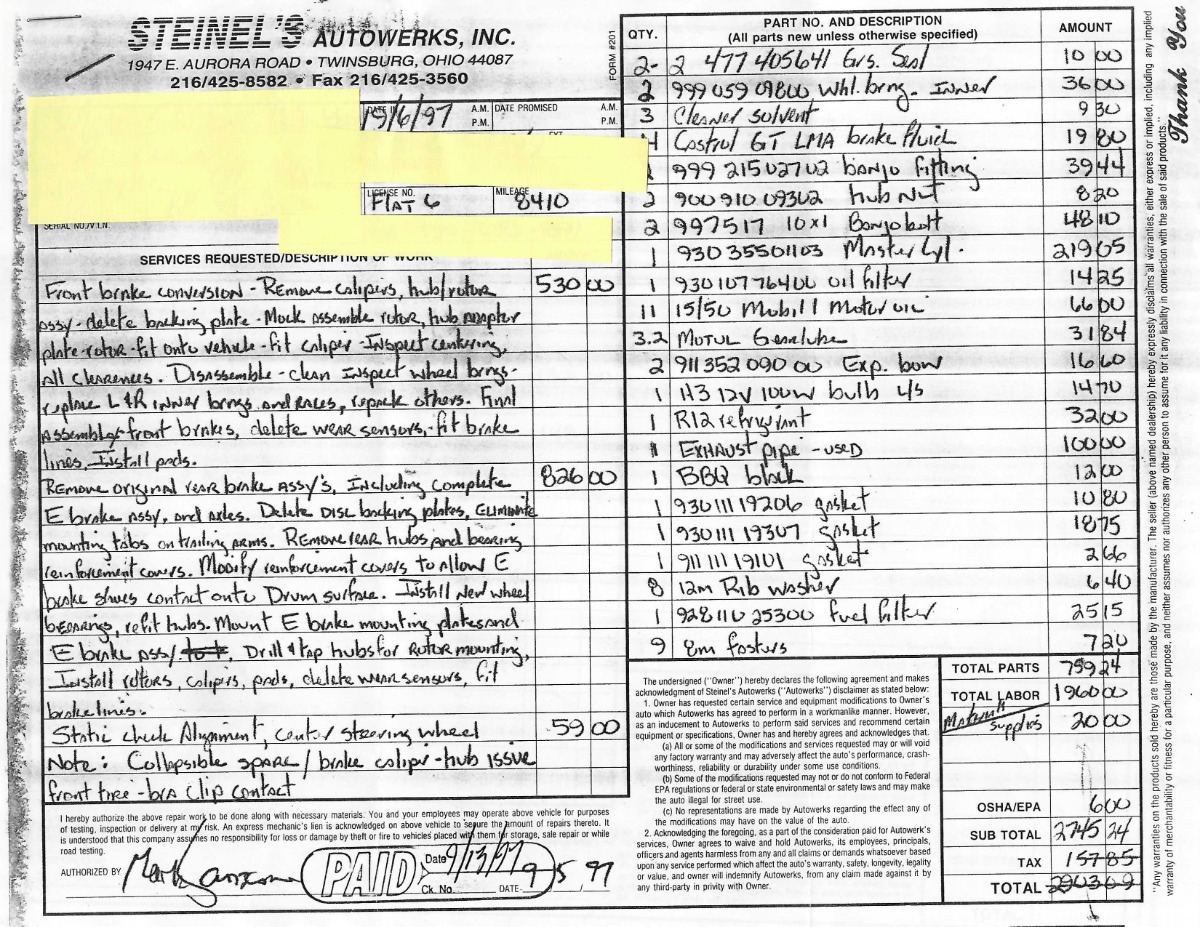 STEINEL'S AUTOWERKS, INC.
1947 E. AURORA ROAD • TWINSBURG, OHIO 44087
216/425-8582 • Fax 216/425-3560
FORM #201
DATE IN 9/6/97 A.M. P.M. DATE PROMISED A.M. P.M.
LICENSE NO. FLAT 6 MILEAGE 8410
SERIAL NO./V.I.N.
SERVICES REQUESTED/DESCRIPTION OF WORK
Front brake conversion - Remove calipers, hub/rotor 530 00
assy - delete backing plate - Mock assemble rotor, hub adaptor
plate-rotor-fit onto vehicle-fit caliper-Inspect centering
All clearences. Disassemble - clean Inspect wheel brngs -
replace L&R inner brngs and races, repack others. Final
Assembly-front brakes, delete wear sensors,-fit brake
lines, Install pads.
Remove original rear brake Assy's, Including complete 826 00
E brake Assy, and axles. Delete Disc backing plates, Eliminate
mounting tabs on trailing arms. Remove rear hubs and bearing
reinforcement covers. Modify reinforcement covers to allow E
brake shoes contact onto Drum surface. Install New wheel
bearings, refit hubs. Mount E brake mounting plates and
E brake Assy Drill & tap hubs for Rotor mounting,
Install rotors, calipers, pads, delete wear sensors, fit
brake lines.
Static check Alignment, center steering wheel 59 00
Note: Collapsible spare / brake caliper - hub issue
front tree - bra clip contact
I hereby authorize the above repair work to be done along with necessary materials. You and your employees may operate above vehicle for purposes
of testing, inspection or delivery at my risk. An express mechanic's lien is acknowledged on above vehicle to secure the amount of repairs thereto. It
is understood that this company assumes no responsibility for loss or damage by theft or fire to vehicles placed with them for storage, sale repair or while
road testing.
AUTHORIZED BY
PAID Date 9/13/97
Ck. No. DATE 9 5 97
QTY. PART NO. AND DESCRIPTION AMOUNT
(All parts new unless otherwise specified)
2- 2 477 405641 Grs. Seal 10 00
2 999 059 09800 Whl. brng. Inner 36 00
3 Cleaner solvent 9 30
4 Castrol GT LMA brake fluid 19 80
999 215 02702 banjo fitting 39 44
2 900 910 09302 hub Nut 8 20
2 997517 10x1 Banjo bolt 48 10
1 930 35501103 Master Cyl. 219 05
1 930 107 76400 oil filter 14 25
11 15/50 Mobil 1 Motor oil 66 00
3.2 MOTUL Gearlube 31 84
2 911 352 090 00 Exp. bow 16 60
1 H3 12V 100W bulb y/s 14 70
1 R12 refrigirant 32 00
1 EXHAUST pipe - used 100 00
1 BBQ black 12 00
1 930 111 19206 gasket 10 80
1 930 111 19307 gasket 18 75
1 911 111 19101 gasket 2 66
8 12m Rib washer 6 40
1 928 110 25300 fuel filter 25 15
9 8m fasturs 7 20
TOTAL PARTS 759 24
TOTAL LABOR 1960 00
supplies 20 00
OSHA/EPA 6 00
SUB TOTAL 2745 24
TAX 157 85
TOTAL 2903 09
The undersigned ("Owner") hereby declares the following agreement and makes
acknowledgment of Steinel's Autowerks ("Autowerks") disclaimer as stated below:
1. Owner has requested certain service and equipment modifications to Owner's
auto which Autowerks has agreed to perform in a workmanlike manner. However,
as an inducement to Autowerks to perform said services and recommend certain
equipment or specifications, Owner has and hereby agrees and acknowledges that.
(a) All or some of the modifications and services requested may or will void
any factory warranty and may adversely affect the auto's performance, crash-
worthiness, reliability or durability under some use conditions.
(b) Some of the modifications requested may not or do not conform to Federal
EPA regulations or federal or state environmental or safety laws and may make
the auto illegal for street use.
(c) No representations are made by Autowerks regarding the effect any of
the modifications may have on the value of the auto.
2. Acknowledging the foregoing, as part of the consideration paid for Autowerk's
services, Owner agrees to waive and hold Autowerks, its employees, principals,
officers and agents harmless from any and all claims or demands whatsoever based
upon any service performed which affect the auto's warranty, safety, longevity, legality
or value, and owner will indemnify Autowerks, from any claim made against it by
any third-party in privity with Owner.
"Any warranties on the products sold hereby are those made by the manufacturer. The seller (above named dealership) hereby expressly disclaims all warranties, either express or implied, including any implied
warranty of merchantability or fitness for a particular purpose, and neither assumes nor authorizes any other person to assume for it any liability in connection with the sale of said products."
Thank You